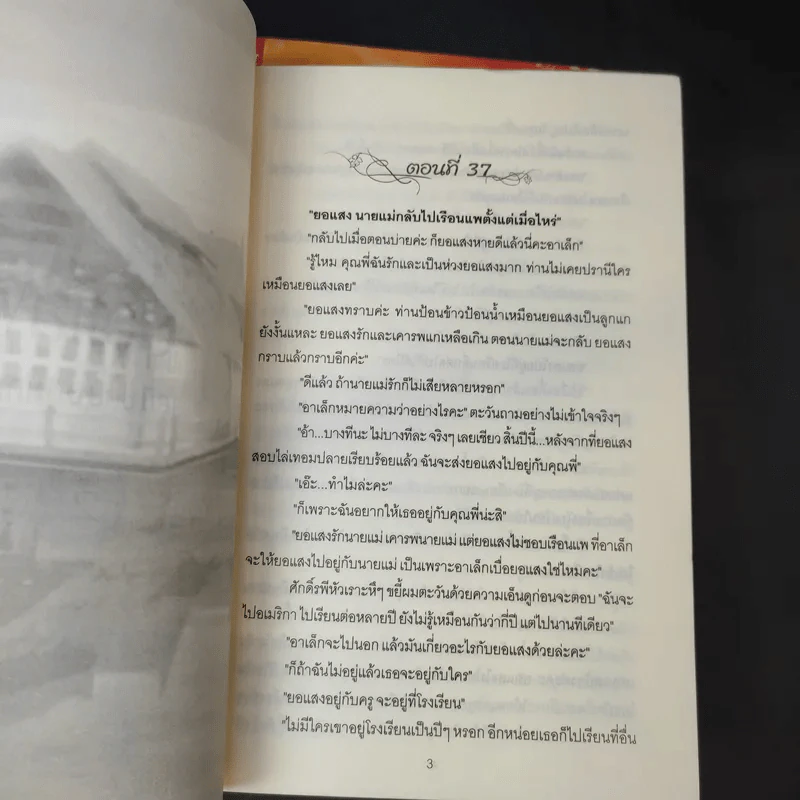 ตอนที่ 37
"ยอแสง นายแม่กลับไปเรือนแพตั้งแต่เมื่อไหร่"
"กลับไปเมื่อตอนบ่ายค่ะ ก็ยอแสงหายดีแล้วนี่คะอาเล็ก"
"รู้ไหม คุณพี่ฉันรักและเป็นห่วงยอแสงมาก ท่านไม่เคยปรานีใคร
เหมือนยอแสงเลย"
"ยอแสงทราบค่ะ ท่านป้อนข้าวป้อนน้ำเหมือนยอแสงเป็นลูกแก
ยังงั้นแหละ ยอแสงรักและเคารพแกเหลือเกิน ตอนนายแม่จะกลับ ยอแสง
กราบแล้วกราบอีกค่ะ"
"ดีแล้ว ถ้านายแม่รักก็ไม่เสียหลายหรอก"
"อาเล็กหมายความว่าอย่างไรคะ" ตะวันถามอย่างไม่เข้าใจจริงๆ
"อ้า...บางทีนะ ไม่บางทีละ จริงๆ เลยเชียว สิ้นปีนี้...หลังจากที่ยอแสง
สอบไล่เทอมปลายเรียบร้อยแล้ว ฉันจะส่งยอแสงไปอยู่กับคุณพี่"
"เอ๊ะ...ทำไมล่ะคะ"
"ก็เพราะฉันอยากให้เธออยู่กับคุณพี่น่ะสิ"
"ยอแสงรักนายแม่ เคารพนายแม่ แต่ยอแสงไม่ชอบเรือนแพ ที่อาเล็ก
จะให้ยอแสงไปอยู่กับนายแม่ เป็นเพราะอาเล็กเบื่อยอแสงใช่ไหมคะ"
ศักดิ์รพีหัวเราะหึๆ ขยี้ผมตะวันด้วยความเอ็นดูก่อนจะตอบ "ฉันจะ
ไปอเมริกา ไปเรียนต่อหลายปี ยังไม่รู้เหมือนกันว่ากี่ปี แต่ไปนานทีเดียว"
"อาเล็กจะไปนอก แล้วมันเกี่ยวอะไรกับยอแสงด้วยล่ะคะ"
"ก็ถ้าฉันไม่อยู่แล้วเธอจะอยู่กับใคร"
"ยอแสงอยู่กับครู จะอยู่ที่โรงเรียน"
"ไม่มีใครเขาอยู่โรงเรียนเป็นปีๆ หรอก อีกหน่อยเธอก็ไปเรียนที่อื่น
3